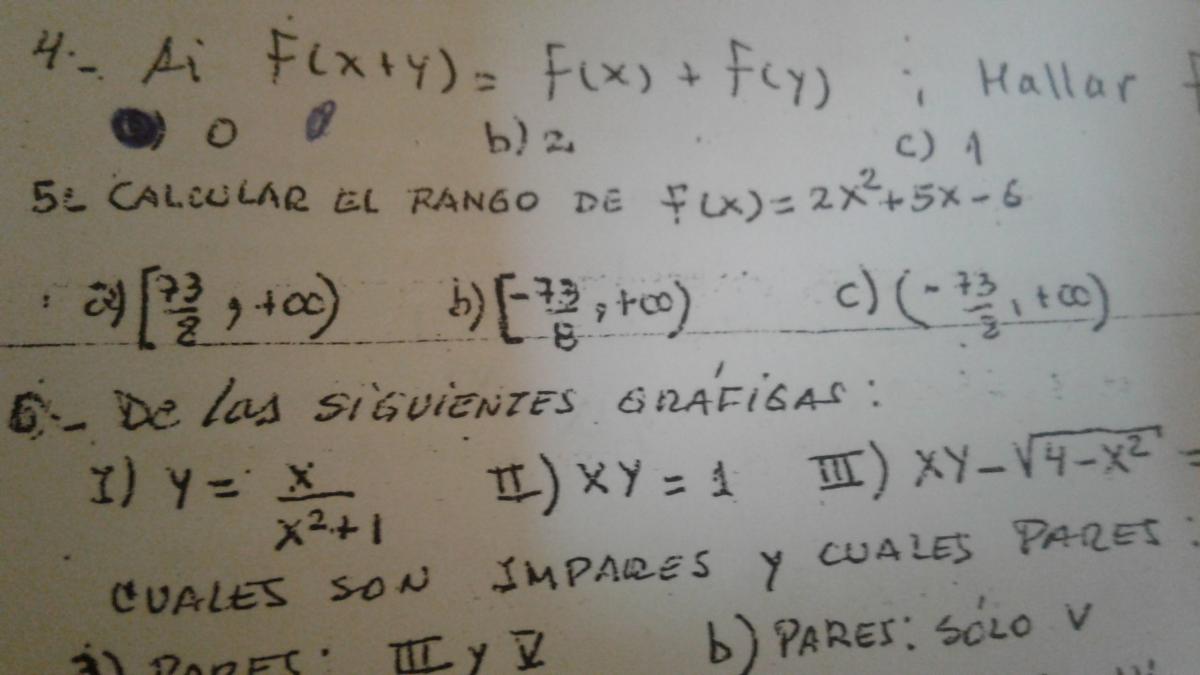 4.- Si F(x+y) = F(x) + F(y) ; Hallar F
a) 0 b) 2 c) 1
5.- CALCULAR EL RANGO DE F(x) = 2x²+5x-6
a) [73/8, +∞) b) [-73/8, +∞) c) (-73/8, +∞)
6.- De las SIGUIENTES GRÁFICAS:
I) Y = x/(x²+1) II) XY = 1 III) XY-√(4-X²) =
CUALES SON IMPARES Y CUALES PARES:
a) PARES: III y V b) PARES: SÓLO V